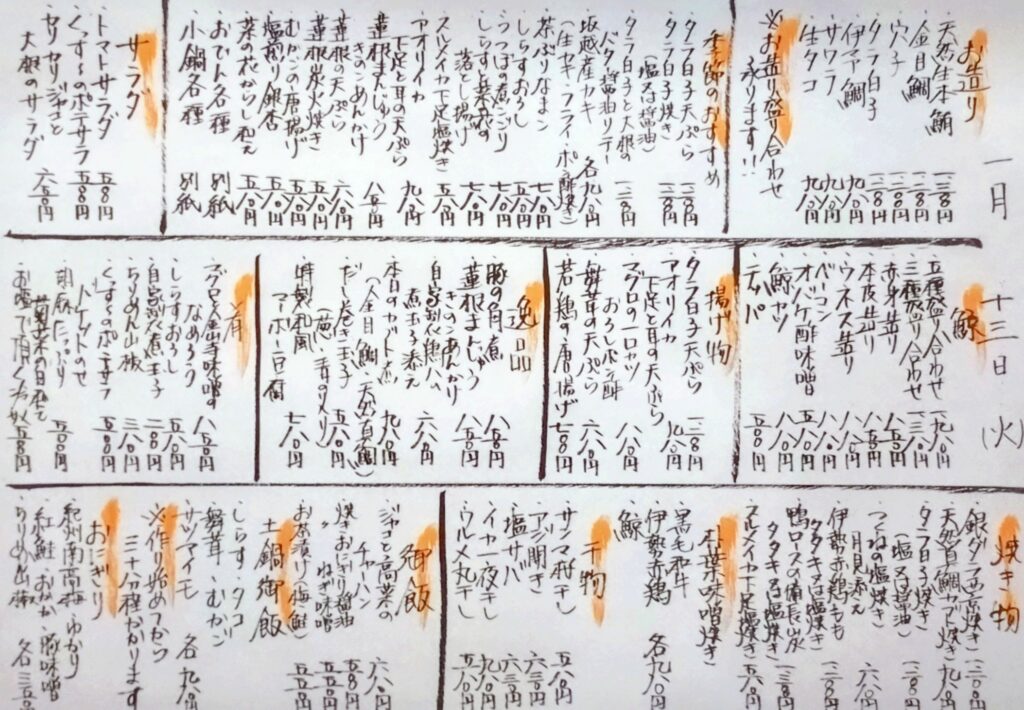 一月
十三日
(火)
お造り
天然生本鮪 一三八〇円
金目鯛 一二八〇円
穴子 一二八〇円
タラ白子 一二八〇円
伊アマ鯛
サワラ 九八〇円
生タコ 九八〇円
※お造り盛り合わせ
承ります!!
季節のおすすめ
タラ白子天ぷら 一二八〇円
タラ白子焼き
(塩又は醤油) 一二八〇円
タラ白子と大根の
バター醤油ソテー 一二八〇円
坂越産カキ
(生・セイロ・フライ・ポン酢焼き) 各九八〇円
茶ぶりなまこ 七八〇円
しらすおろし 五八〇円
うつぼの煮こごり
しらすと菜花の
落とし揚げ 七八〇円
スルメイカ下足塩焼き
アオリイカ
下足と耳の天ぷら 九八〇円
蓮根まんじゅう
きのこあんかけ 八五〇円
蓮根の天ぷら 六八〇円
蓮根炭火焼き 五八〇円
むかごの唐揚げ 五八〇円
塩煎り銀杏 五八〇円
菜の花からし和え 五八〇円
おでん各種 別紙
小鍋各種 別紙
サラダ
トマトサラダ 五八〇円
ぐっず〜のポテサラ 五八〇円
セリとカリカリジャコと
大根のサラダ 六五〇円
鯨
五種盛り合わせ 一九八〇円
三種盛り合わせ 一三八〇円
赤身造り
本皮造り
ウネス造り
ベーコン
オバケ酢味噌
鯨カツ
揚げ物
タラ白子天ぷら 一二八〇円
アオリイカ
下足と耳の天ぷら 九八〇円
マグロの一口カツ
おろしポン酢 八八〇円
舞茸の天ぷら 六八〇円
若鶏の唐揚げ 七八〇円
逸品
豚の角煮
蓮根まんじゅう
きのこあんかけ 八五〇円
自家製鶏ハム
煮玉子添え 六八〇円
本日のカブト煮
(金目鯛・天然真鯛) 九八〇円
だし巻き玉子
(葱・青のり入り) 五八〇円
特製和風
マーボー豆腐 七八〇円
肴
マグロと金山寺味噌の
なめろう 八五〇円
しらすおろし 五八〇円
自家製煮玉子 二八〇円
ちりめん山椒 三八〇円
ぐっず〜のポテサラ
焼き物
銀ダラ西京焼き 一二八〇円
天然真鯛カブト焼き 九八〇円
タラ白子焼き
(塩又は醤油) 一二八〇円
つくねの塩焼き
月見添え 六八〇円
伊勢赤鶏もも
タタキ又は塩焼き 一二八〇円
鴨ロースの備長炭
タタキ又は塩焼き 一三八〇円
スルメイカ下足塩焼き
朴葉味噌焼き
黒毛和牛
伊勢赤鶏
鯨 各九八〇円
干物
サンマ丸干し 五八〇円
アジ開き 六三〇円
塩サバ
イカ一夜干し 九八〇円
ウルメ丸干し 五八〇円
御飯
ジャコと高菜の
チャーハン 六八〇円
焼きおにぎり醤油 五八〇円
〃 ねぎ味噌 五五〇円
お茶漬け(梅・鮭) 五五〇円
土鍋御飯
しらす タコ
舞茸 むかご
サツマイモ 各九八〇円
※作り始めてから
三十分程かかります
おにぎり
紀州南高梅 ゆかり
紅鮭 おかか 豚味噌
ちりめん山椒 各三五〇円